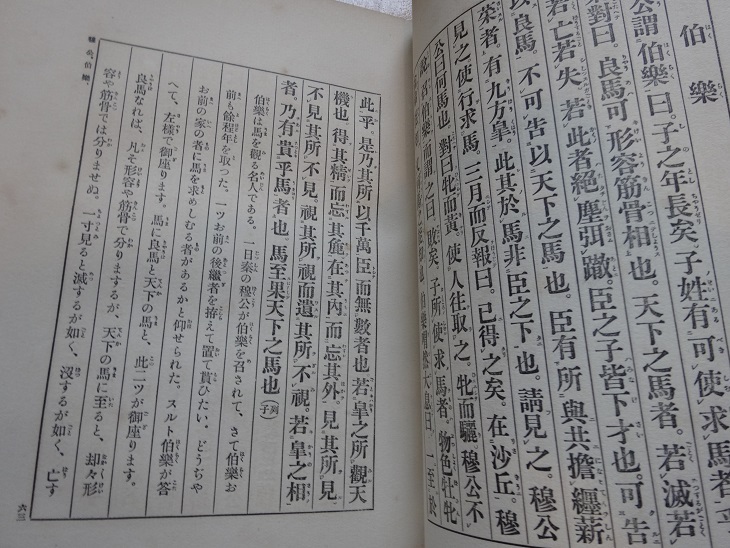 伯樂
公謂伯樂曰。子之年長矣。子姓有可使求馬者乎
對曰。良馬可形容筋骨相也。天下之馬者。若滅若
若亡若失。若此者絕塵弭轍。臣之子皆下才也。可告
以良馬。不可告以天下之馬也。臣有所與共擔纏薪
菜者。有九方皐。此其於馬非臣之下也。請見之。穆公
見之使行求馬。三月而反報曰。已得之矣。在沙丘。穆
公曰何馬也。對曰牝而黃。使人往取之。牝而驪。穆公不
伯樂而謂之曰。敗矣。子所使求馬者。物色牡牝
伯樂喟然大息曰。一至於
此乎。是乃其所以千萬臣而無數者也。若皐之所觀天
機也。得其精而忘其麁在其內而忘其外。見其所見
不見其所不見。視其所視而遺其所不視。若皐之相
者。乃有貴乎馬者也。馬至果天下之馬也(列子)
伯樂は馬を觀る名人である。一日秦の穆公が伯樂を召されて、さて伯樂お
前も餘程年を取つた。一ツお前の後繼者を拵えて置て貰ひたい、どうぢや
お前の家の者に馬を求めしむる者があるかと仰せられた、スルト伯樂が答
へて、左樣で御座ります。馬に良馬と天下の馬と、此二ツが御座ります。
良馬なれば、凡そ形容や筋骨で分りまするが、天下の馬に至ると、却々形
容や筋骨では分りませぬ。一寸見ると滅するが如く、沒するが如く、亡す
六三